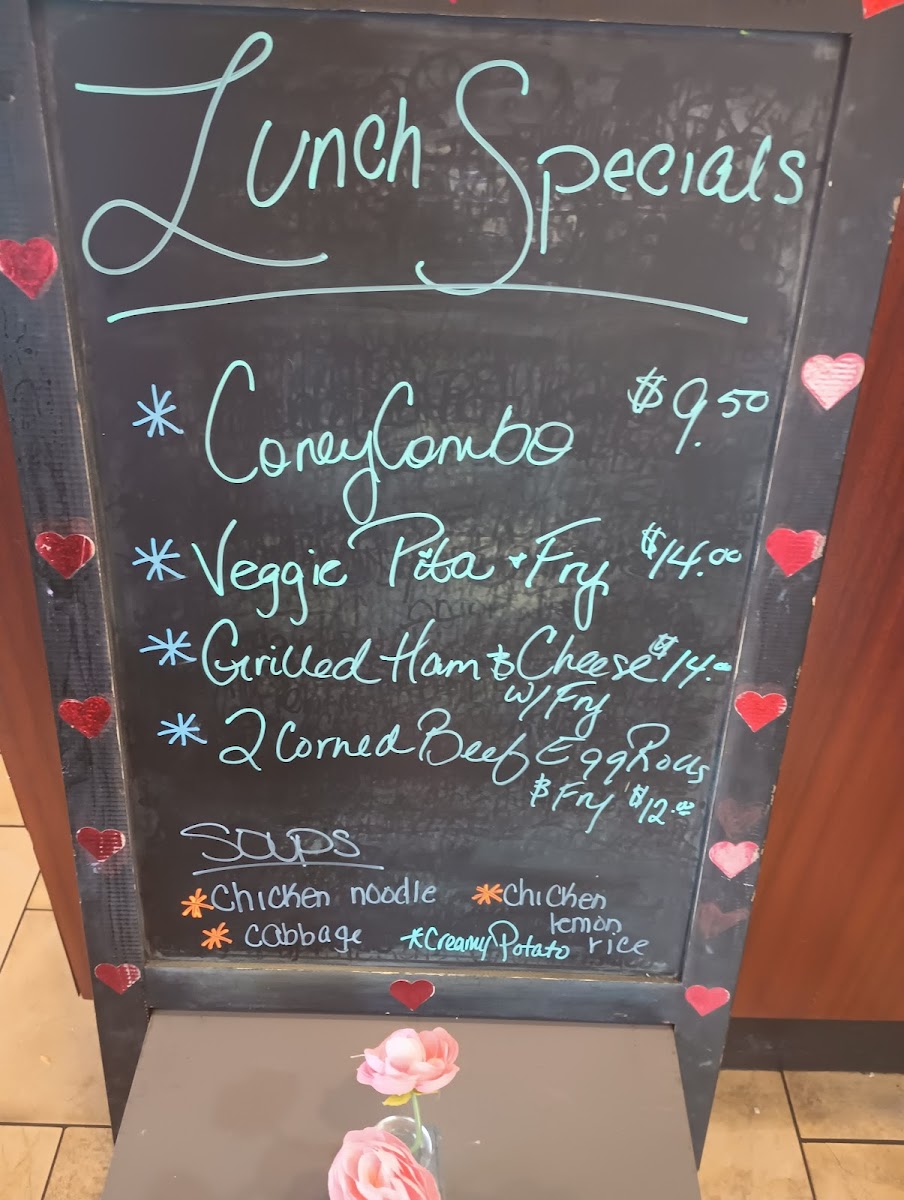 Lunch Specials
* Coney Combo $9.50
* Veggie Pita + Fry $14.00
* Grilled Ham & Cheese $14.00
w/ Fry
* 2 Corned Beef Egg Rolls
& Fry $12.00
Soups
* Chicken noodle * Chicken
lemon
* cabbage * Creamy Potato rice